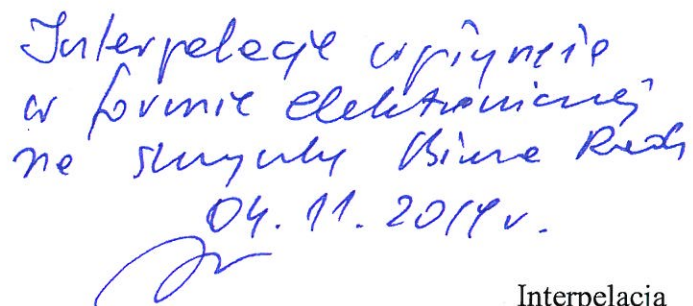 Interpelacje wpłynęła
w formie elektronicznej
na skrzynkę Biura Rady
04.11.2019 r.
Interpelacja